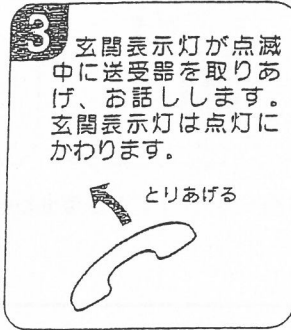 3
玄関表示灯が点滅
中に送受器を取りあ
げ、お話しします。
玄関表示灯は点灯に
かわります。
とりあげる